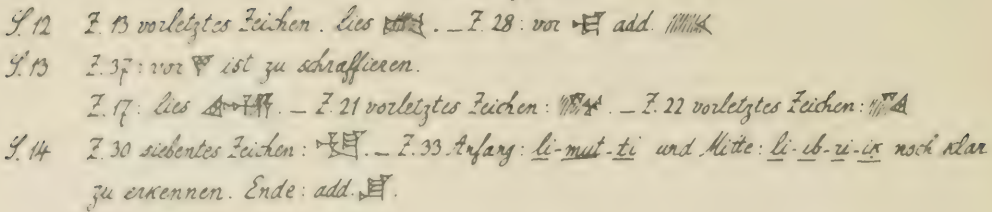 S. 12 Z. 13 vorletztes Zeichen. lies . _ Z. 28: vor add.
S. 13 Z. 37: vor ist zu schraffieren.
Z. 17: lies . _ Z. 21 vorletztes Zeichen: . _ Z. 22 vorletztes Zeichen:
S. 14 Z. 30 siebentes Zeichen: . _ Z. 33 Anfang: li-mut-ti und Mitte: li-ib-ri-ix noch klar
zu erkennen. Ende: add. .